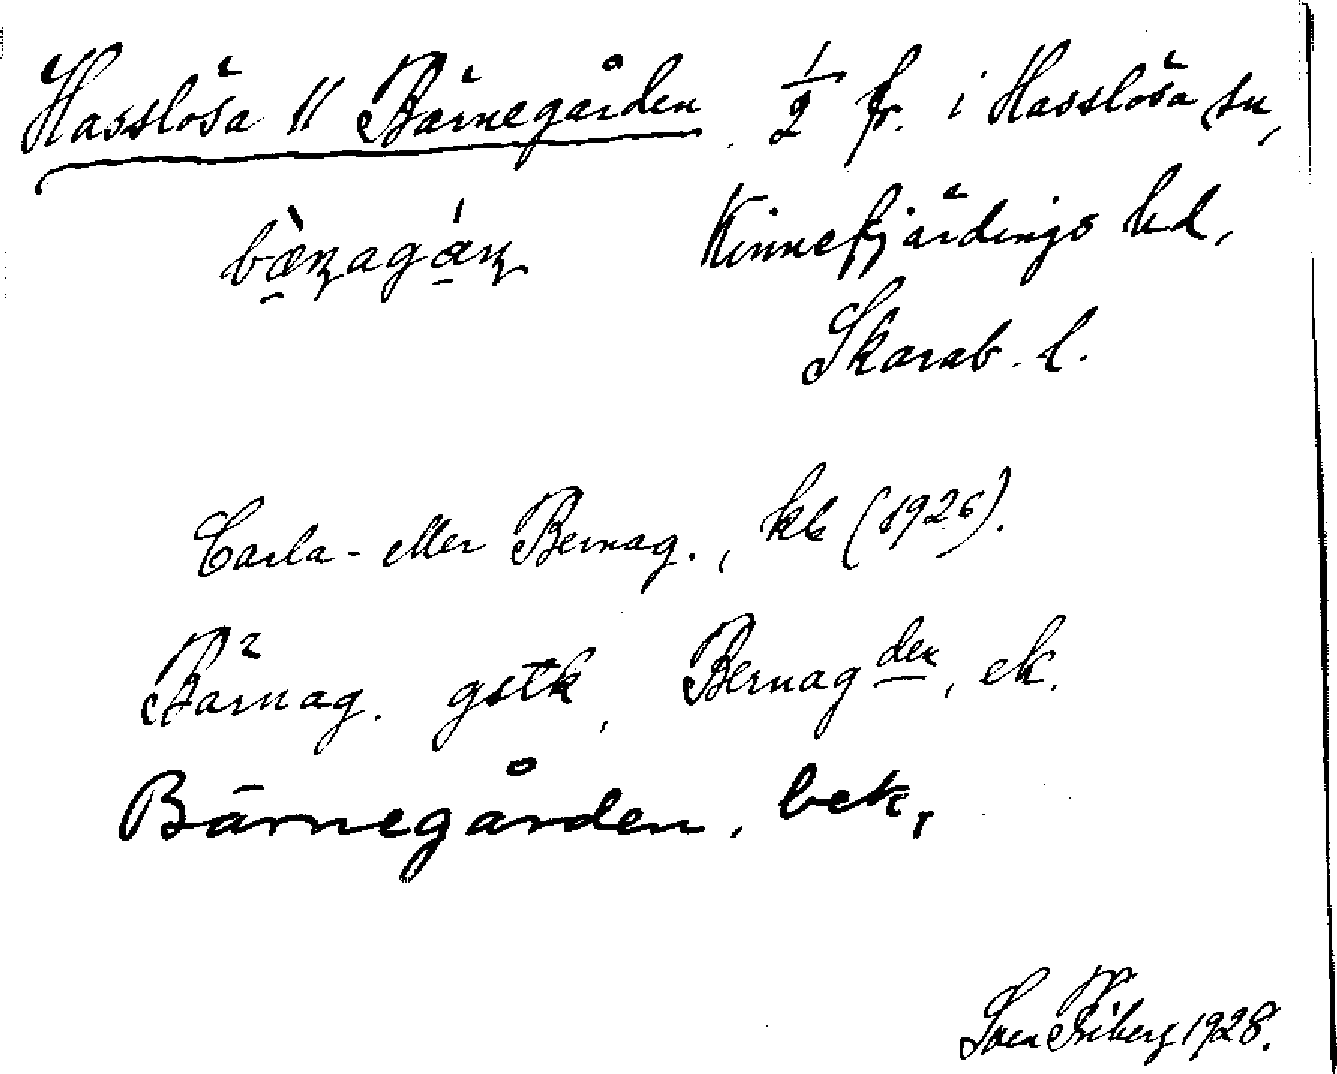 Hasslösa 11 Bärnegården, 1/2 fr. i Hasslösa sn,
bæ̀ṇagáṇ Kinnefjärdings hd,
Skarab. l.
Carla- eller Bernag., kb (1926).
Bärnag. gstk, Bernagden, ek.
Bärnegården, bek,
Sven Friberg 1928.